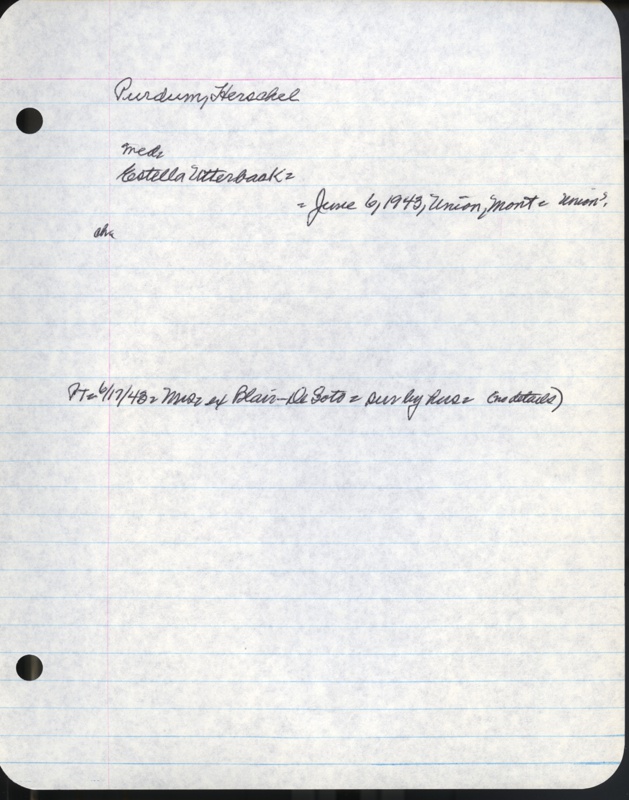 Purdum, Herschel
med.
Estella Utterback =
= June 6, 1943, Union, Mont = Union.
chr
6/17/43 = Mrs = ex Blair - De Soto = sur by hus = (no details)